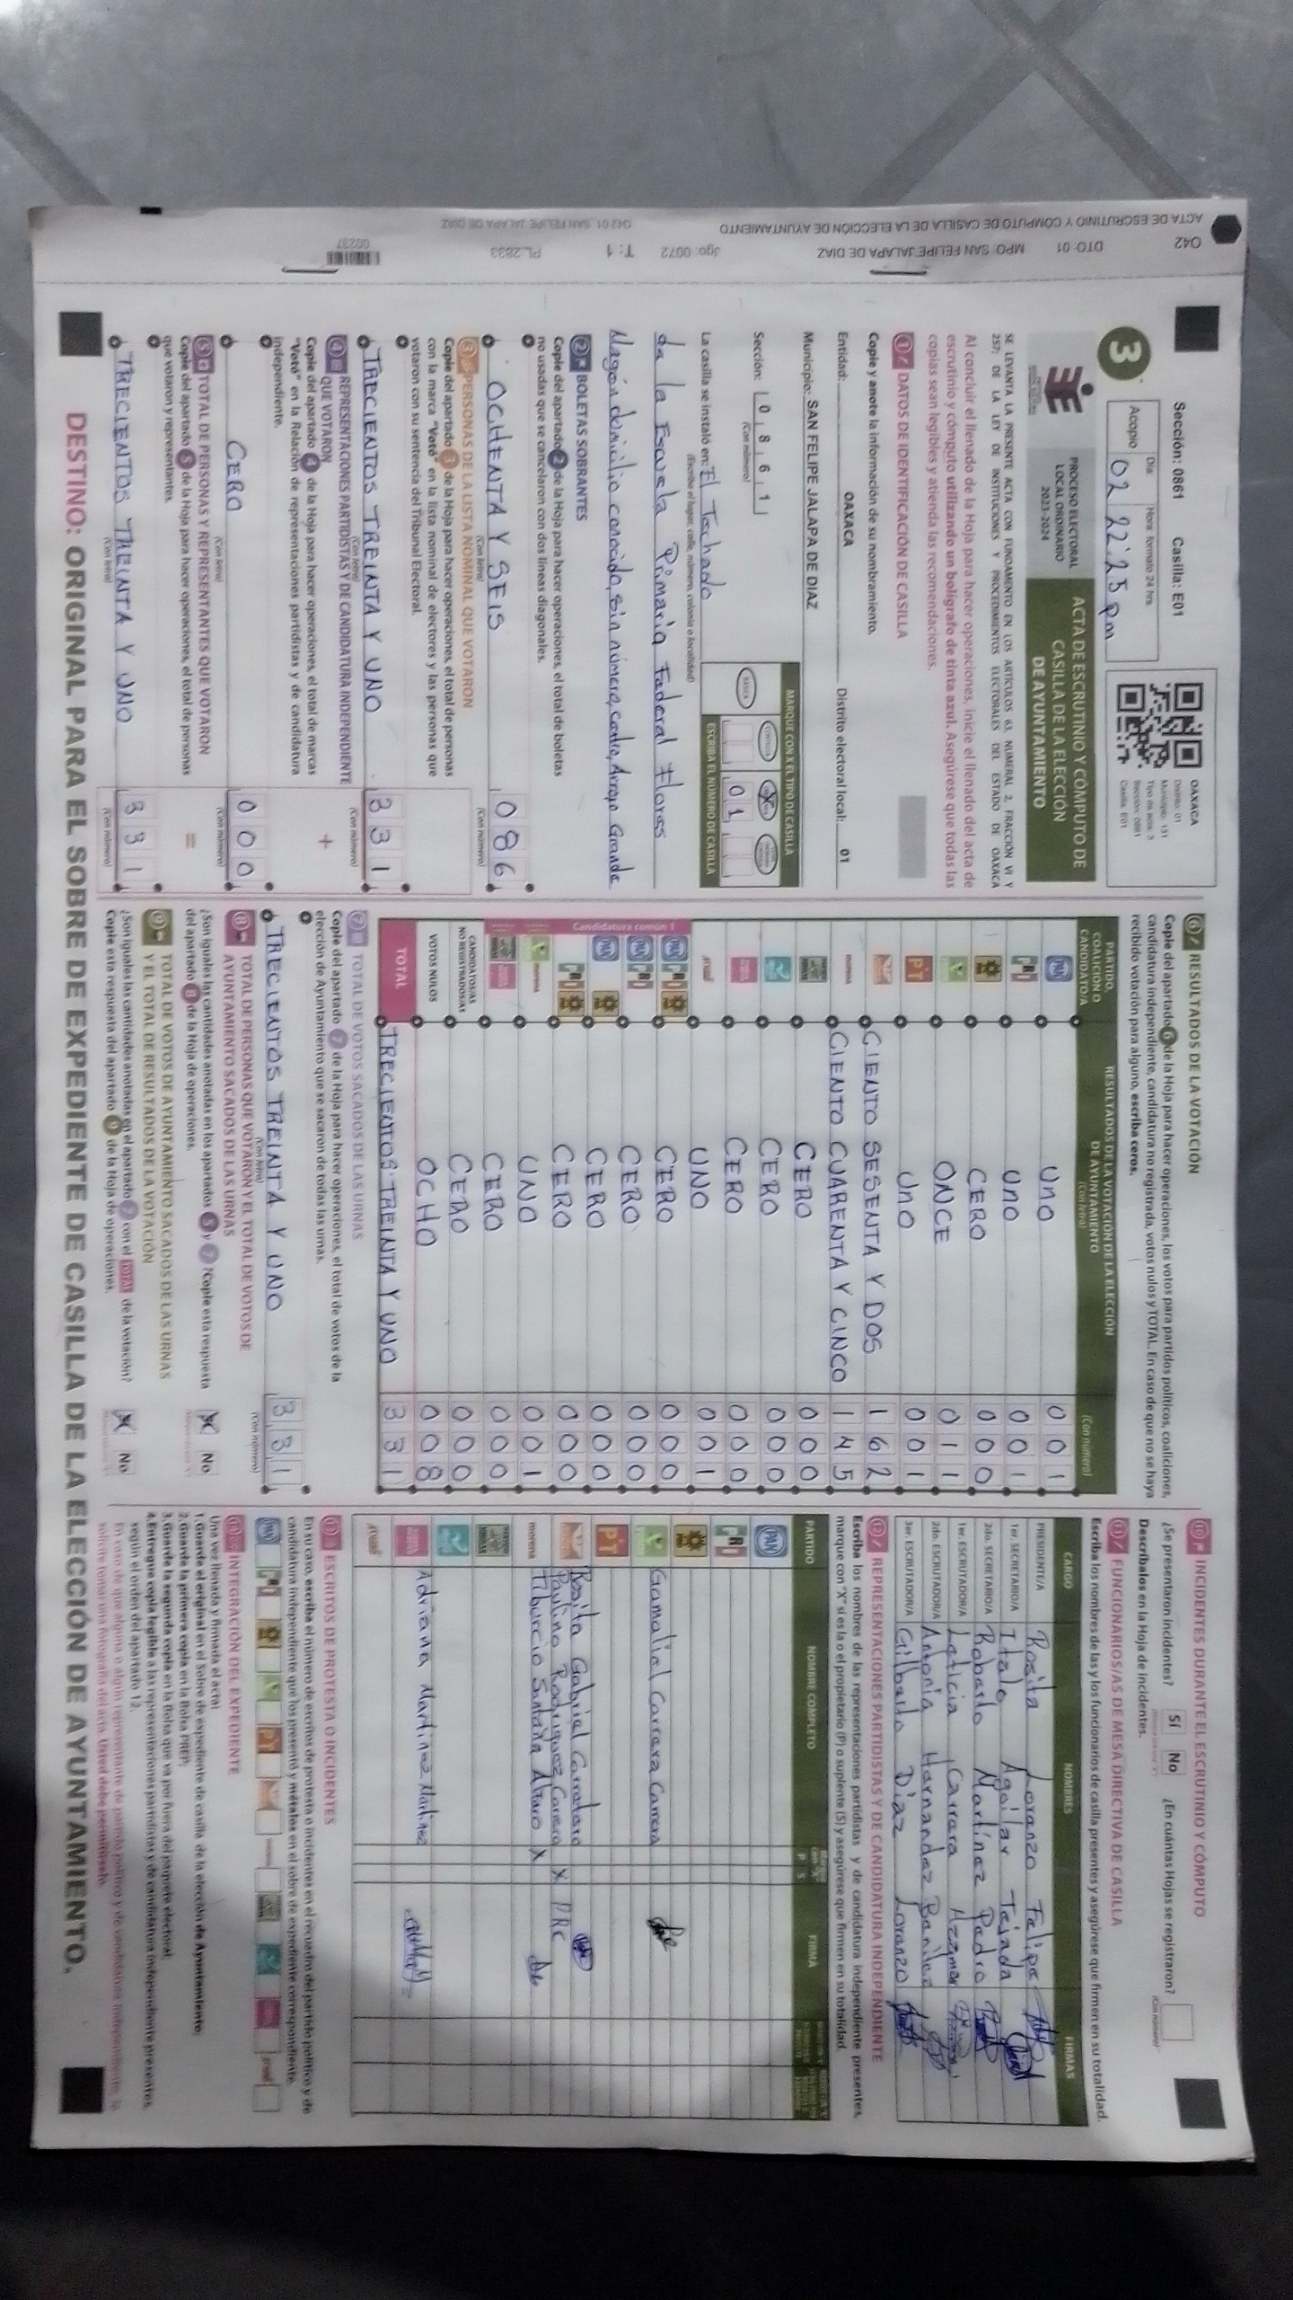 ACTA DE ESCRUTINIO Y CÓMPUTO DE CASILLA DE LA ELECCIÓN DE AYUNTAMIENTO
042
DTO: 01
MPO: SAN FELIPE JALAPA DE DIAZ
T: 1
PL:2833
042 01 SAN FELIPE JALAPA DE DIAZ
00237
Sección: 0861 Casilla: E01
3
Día Hora: formato 24 hrs
Acopio 02 22:25 pm
OAXACA
Distrito: 01
Municipio: 131
Sección: 0861
Casilla: E01
PROCESO ELECTORAL
LOCAL ORDINARIO
2023-2024
ACTA DE ESCRUTINIO Y CÓMPUTO DE
CASILLA DE LA ELECCIÓN
DE AYUNTAMIENTO
SE LEVANTA LA PRESENTE ACTA CON FUNDAMENTO EN LOS ARTÍCULOS 63, NUMERAL 2, FRACCIÓN VI Y
257; DE LA LEY DE INSTITUCIONES Y PROCEDIMIENTOS ELECTORALES DEL ESTADO DE OAXACA
Al concluir el llenado de la Hoja para hacer operaciones, inicie el llenado del acta de
escrutinio y cómputo utilizando un bolígrafo de tinta azul. Asegúrese que todas las
copias sean legibles y atienda las recomendaciones.
1 DATOS DE IDENTIFICACIÓN DE CASILLA
Copie y anote la información de su nombramiento.
Entidad: OAXACA Distrito electoral local: 01
Municipio: SAN FELIPE JALAPA DE DIAZ
MARQUE CON X EL TIPO DE CASILLA
Sección: 0 8 6 1
(Con número)
ESCRIBA EL NÚMERO DE CASILLA
0 1
La casilla se instaló en: El Techado
(Escriba el lugar, calle, número, colonia o localidad)
de la Escuela Primaria Federal Flores
Magón domicilio conocido, sin número, centro, Arroyo Grande
2 BOLETAS SOBRANTES
Copie del apartado 2 de la Hoja para hacer operaciones, el total de boletas
no usadas que se cancelaron con dos líneas diagonales.
OCHENTA Y SEIS 086
(Con letra) (Con número)
3 PERSONAS DE LA LISTA NOMINAL QUE VOTARON
Copie del apartado 3 de la Hoja para hacer operaciones, el total de personas
con la marca "Votó" en la lista nominal de electores y las personas que
votaron con su sentencia del Tribunal Electoral.
TRECIENTOS TREINTA Y UNO 331
(Con letra) (Con número)
4 REPRESENTACIONES PARTIDISTAS Y DE CANDIDATURA INDEPENDIENTE
QUE VOTARON
+
Copie del apartado 4 de la Hoja para hacer operaciones, el total de marcas
"Votó" en la Relación de representaciones partidistas y de candidatura
independiente.
CERO 000
(Con letra) (Con número)
5 TOTAL DE PERSONAS Y REPRESENTANTES QUE VOTARON
=
Copie del apartado 5 de la Hoja para hacer operaciones, el total de personas
que votaron y representantes.
TRECIENTOS TREINTA Y UNO 331
(Con letra) (Con número)
6 RESULTADOS DE LA VOTACIÓN
Copie del apartado 6 de la Hoja para hacer operaciones, los votos para partidos políticos, coaliciones,
candidatura independiente, candidatura no registrada, votos nulos y TOTAL. En caso de que no se haya
recibido votación para alguno, escriba ceros.
PARTIDO, COALICIÓN O CANDIDATO/A
RESULTADOS DE LA VOTACIÓN DE LA ELECCIÓN
DE AYUNTAMIENTO
(Con letra) (Con número)
PAN UNO 001
PRI UNO 001
CERO 000
ONCE 011
PT UNO 001
CIENTO SESENTA Y DOS 162
morena CIENTO CUARENTA Y CINCO 145
CERO 000
CERO 000
CERO 000
UNO 001
Candidatura común 1
PAN PRI CERO 000
PAN PRI CERO 000
PAN CERO 000
PRI CERO 000
morena UNO 001
CERO 000
CANDIDATOS/AS
NO REGISTRADOS/AS CERO 000
VOTOS NULOS OCHO 008
TOTAL TRECIENTOS TREINTA Y UNO 331
7 TOTAL DE VOTOS SACADOS DE LAS URNAS
Copie del apartado 7 de la Hoja para hacer operaciones, el total de votos de la
elección de Ayuntamiento que se sacaron de todas las urnas.
TRECIENTOS TREINTA Y UNO 331
(Con letra) (Con número)
8 TOTAL DE PERSONAS QUE VOTARON Y EL TOTAL DE VOTOS DE
AYUNTAMIENTO SACADOS DE LAS URNAS
¿Son iguales las cantidades anotadas en los apartados 5 y 7? Copie esta respuesta
del apartado 8 de la Hoja de operaciones. X No
9 TOTAL DE VOTOS DE AYUNTAMIENTO SACADOS DE LAS URNAS
Y EL TOTAL DE RESULTADOS DE LA VOTACIÓN
¿Son iguales las cantidades anotadas en el apartado 7 con el TOTAL de la votación? X No
Copie esta respuesta del apartado 9 de la Hoja de operaciones.
10 INCIDENTES DURANTE EL ESCRUTINIO Y CÓMPUTO
¿Se presentaron incidentes? SÍ No ¿En cuántas Hojas se registraron?
(Con número)
Descríbalos en la Hoja de incidentes.
11 FUNCIONARIOS/AS DE MESA DIRECTIVA DE CASILLA
Escriba los nombres de las y los funcionarios de casilla presentes y asegúrese que firmen en su totalidad.
CARGO NOMBRES FIRMAS
PRESIDENTE/A Rosila Lorenzo Felipe
1er. SECRETARIO/A Italo Aguilar Tejada
2do. SECRETARIO/A Roberto Martínez Pedro
1er. ESCRUTADOR/A Leticia Carrera
2do. ESCRUTADOR/A Antonia Hernandez
3er. ESCRUTADOR/A Gilberto Diaz Lorenzo
12 REPRESENTACIONES PARTIDISTAS Y DE CANDIDATURA INDEPENDIENTE
Escriba los nombres de las representaciones partidistas y de candidatura independiente presentes,
marque con "X" si es la o el propietario (P) o suplente (S) y asegúrese que firmen en su totalidad.
PARTIDO NOMBRE COMPLETO P S FIRMA
PAN
PRI
Gamaliel Carrera Carrera
PT
Rosila Gabriel
Paulino Rodriguez Carrera X PRC
morena Tiburcio X
Adriana Martinez Martinez
13 ESCRITOS DE PROTESTA O INCIDENTES
En su caso, escriba el número de escritos de protesta o incidentes en el recuadro del partido político y de
candidatura independiente que los presentó y métalos en el sobre de expediente correspondiente.
14 INTEGRACIÓN DEL EXPEDIENTE
Una vez llenada y firmada el acta:
1. Guarde el original en el Sobre de expediente de casilla de la elección de Ayuntamiento;
2. Guarde la primera copia en la Bolsa PREP;
3. Guarde la segunda copia en la Bolsa que va por fuera del paquete electoral.
4. Entregue copia legible a las representaciones partidistas y de candidatura independiente presentes,
según el orden del apartado 12.
DESTINO: ORIGINAL PARA EL SOBRE DE EXPEDIENTE DE CASILLA DE LA ELECCIÓN DE AYUNTAMIENTO.